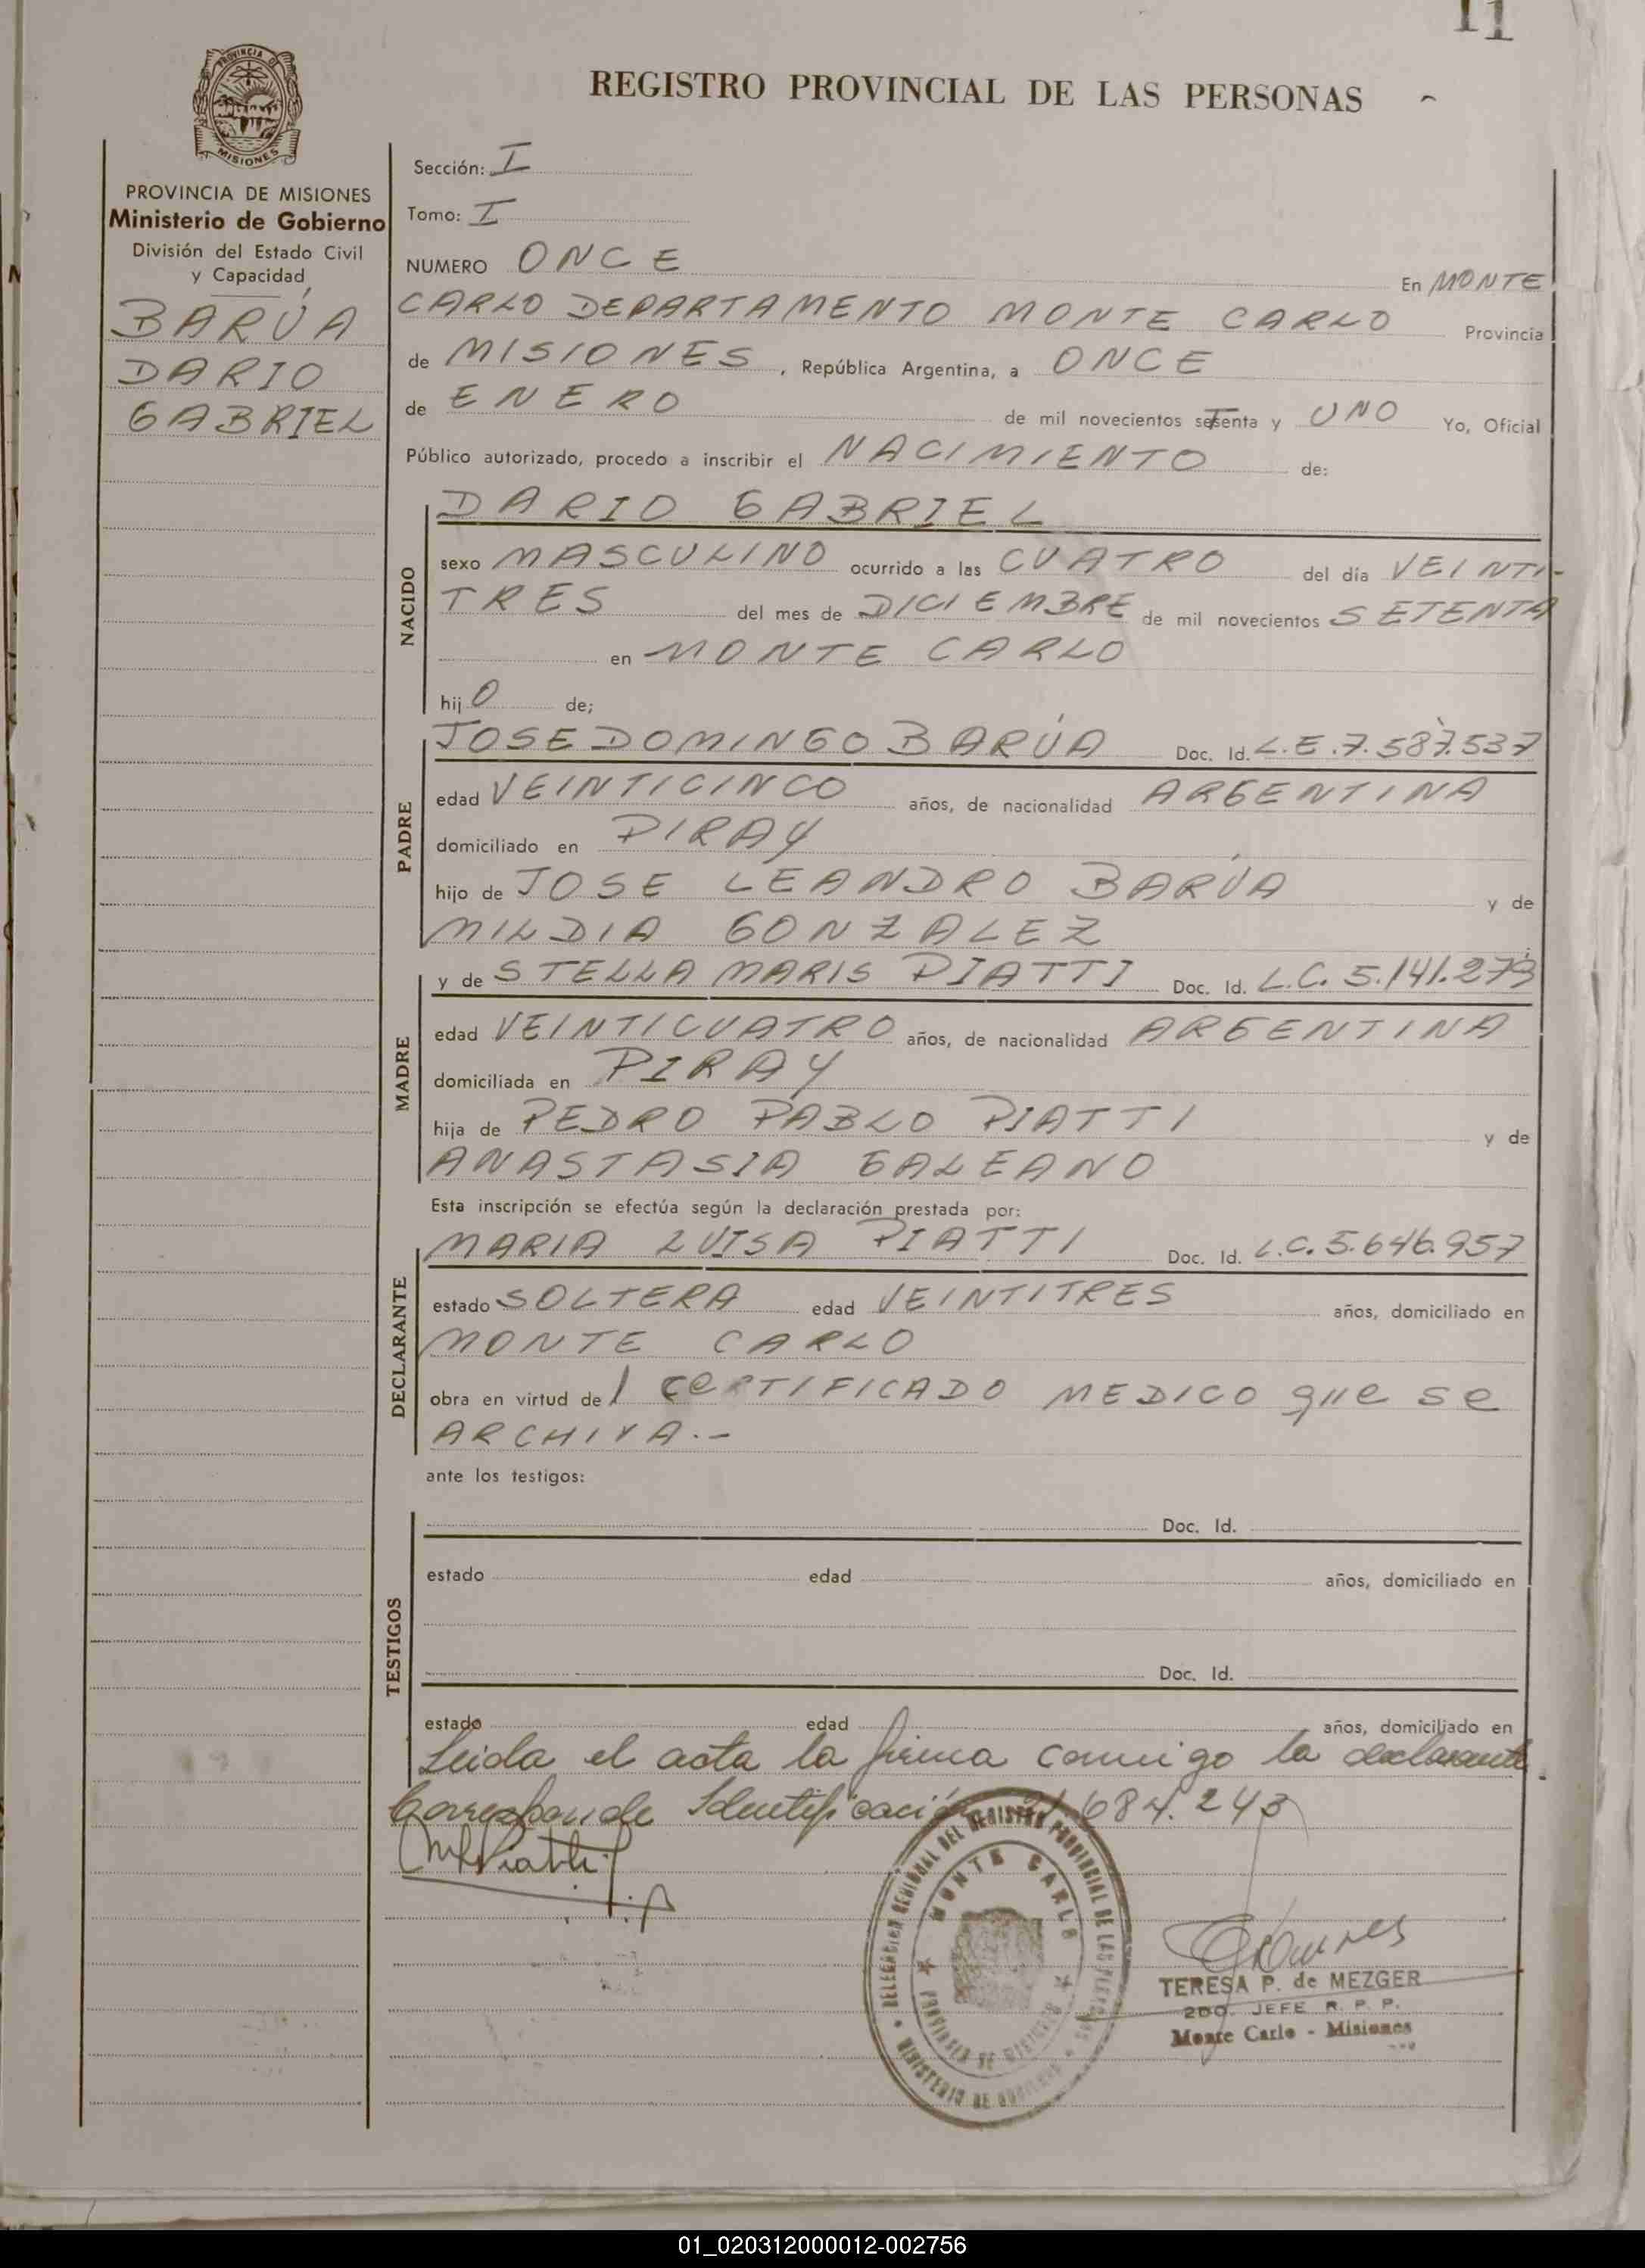 11
REGISTRO PROVINCIAL DE LAS PERSONAS
PROVINCIA DE MISIONES
PROVINCIA DE MISIONES
Ministerio de Gobierno
División del Estado Civil
y Capacidad
BARÚA
DARIO
GABRIEL
Sección: I
Tomo: I
NUMERO ONCE En MONTE
CARLO DEPARTAMENTO MONTE CARLO Provincia
de MISIONES, República Argentina, a ONCE
de ENERO de mil novecientos setenta y UNO Yo, Oficial
Público autorizado, procedo a inscribir el NACIMIENTO de:
NACIDO
DARIO GABRIEL
sexo MASCULINO ocurrido a las CUATRO del día VEINTI-
TRES del mes de DICIEMBRE de mil novecientos SETENTA
en MONTE CARLO
hijO de;
PADRE
JOSE DOMINGO BARÚA Doc. Id. L.E.7.587.537
edad VEINTICINCO años, de nacionalidad ARGENTINA
domiciliado en PIRAY
hijo de JOSE LEANDRO BARÚA y de
MILDIA GONZALEZ
MADRE
y de STELLA MARIS PIATTI Doc. Id. L.C. 5.141.273
edad VEINTICUATRO años, de nacionalidad ARGENTINA
domiciliada en PIRAY
hija de PEDRO PABLO PIATTI y de
ANASTASIA GALEANO
Esta inscripción se efectúa según la declaración prestada por:
DECLARANTE
MARIA LUISA PIATTI Doc. Id. L.C. 5.646.957
estado SOLTERA edad VEINTITRES años, domiciliado en
MONTE CARLO
obra en virtud de 1 CERTIFICADO MEDICO que se
ARCHIVA.-
ante los testigos:
TESTIGOS
Doc. Id.
estado edad años, domiciliado en
Doc. Id.
estado edad años, domiciliado en
Leida el acta la firma conmigo la declarante.
Corresponde Identificación 21.684.243
MLPiatti
DELEGACION REGIONAL DEL REGISTRO PROVINCIAL DE LAS PERSONAS
MINISTERIO DE GOBIERNO
MONTE CARLO
PROVINCIA DE MISIONES
TERESA P. de MEZGER
2DO. JEFE R. P. P.
Monte Carlo - Misiones
01_020312000012-002756